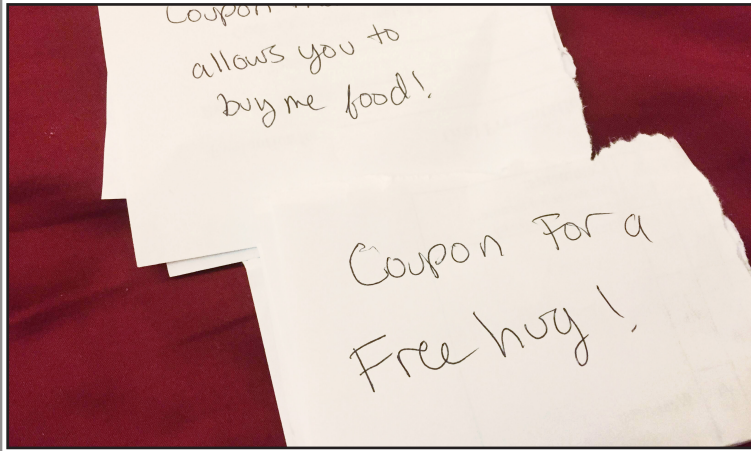 Coupon
allows you to
buy me food!
Coupon For a
Free hug!